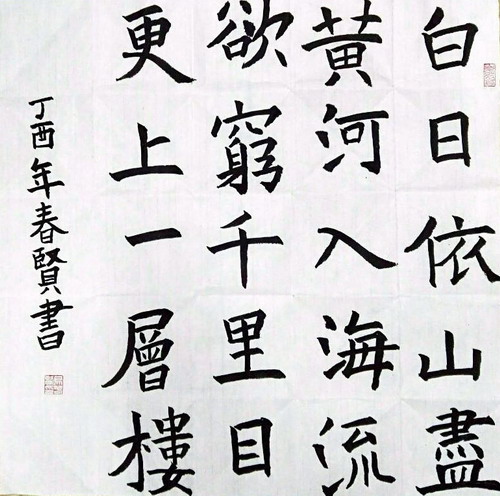 白日依山盡
黃河入海流
欲窮千里目
更上一層樓
丁酉年春賢書